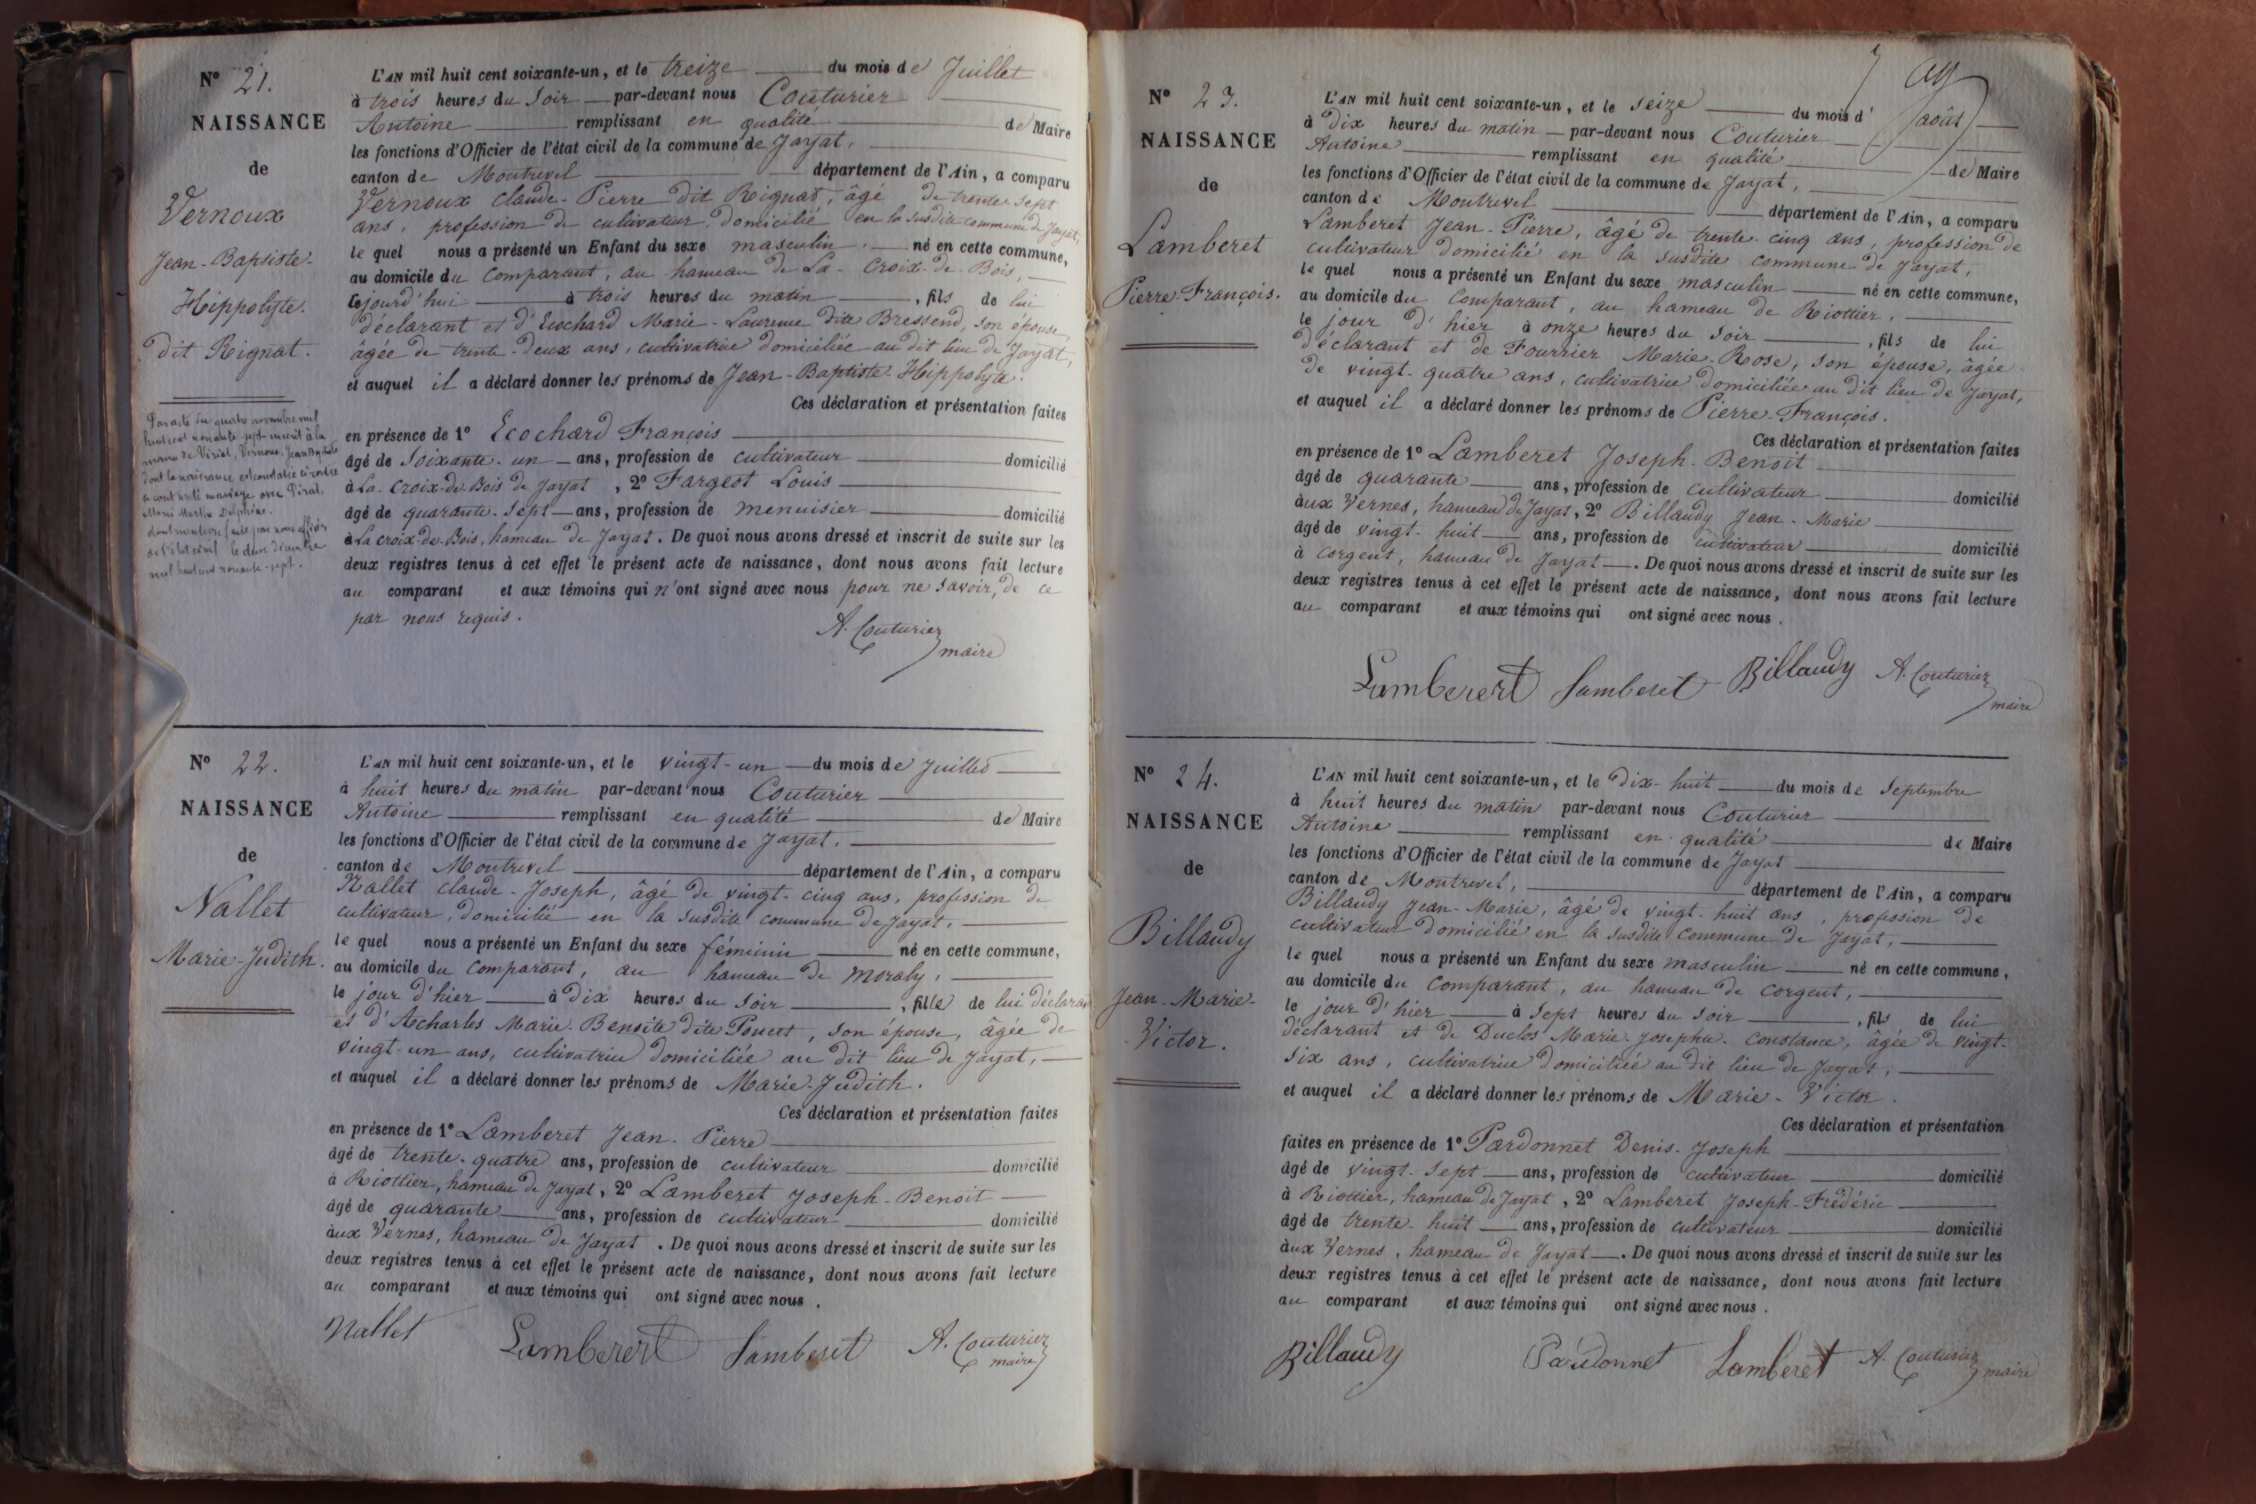 N° 21.
NAISSANCE
de
Vernoux
Jean-Baptiste-
Hippolyte.
dit Rignat.
Par acte du quatre novembre mil
huit cent nonante-sept inscrit à la
mairie de Viriat, Vernoux Jean Baptiste
dont la naissance est constatée ci-contre
a contracté mariage avec Piral
Marie Delphine.
de l'état civil le deux Décembre
mil huit cent nonante-sept.
L'AN mil huit cent soixante-un, et le treize du mois de Juillet
à trois heures du soir par-devant nous Couturier
Antoine remplissant en qualité de Maire
les fonctions d'Officier de l'état civil de la commune de Jayat,
canton de Montrevel département de l'Ain, a comparu
Vernoux Claude-Pierre dit Rignat, âgé de trente sept
ans, profession de cultivateur, domicilié en la susdite commune de Jayat,
le quel nous a présenté un Enfant du sexe masculin, né en cette commune,
au domicile du comparant, au hameau de La-Croix-de-Bois,
cejourd'hui à trois heures du matin, fils de lui
déclarant et d'Ecochard Marie-Laurence dite Bressend, son épouse
âgée de trente-deux ans, cultivatrice domiciliée au dit lieu de Jayat,
et auquel il a déclaré donner les prénoms de Jean-Baptiste-Hippolyte.
Ces déclaration et présentation faites
en présence de 1° Ecochard François
âgé de soixante-un ans, profession de cultivateur domicilié
à La-Croix-de-Bois de Jayat, 2° Fargeot Louis
âgé de quarante-sept ans, profession de menuisier domicilié
à La Croix-de-Bois, hameau de Jayat. De quoi nous avons dressé et inscrit de suite sur les
deux registres tenus à cet effet le présent acte de naissance, dont nous avons fait lecture
au comparant et aux témoins qui n'ont signé avec nous pour ne savoir, de ce
par nous requis.
A. Couturier
maire
N° 22.
NAISSANCE
de
Nallet
Marie-Judith.
L'AN mil huit cent soixante-un, et le vingt-un du mois de Juillet
à huit heures du matin par-devant nous Couturier
Antoine remplissant en qualité de Maire
les fonctions d'Officier de l'état civil de la commune de Jayat.
canton de Montrevel département de l'Ain, a comparu
Nallet Claude-Joseph, âgé de vingt-cinq ans, profession de
cultivateur, domicilié en la susdite commune de Jayat,
le quel nous a présenté un Enfant du sexe féminin né en cette commune,
au domicile du comparant, au hameau de Moraly,
le jour d'hier à dix heures du soir, fille de lui déclarant
et d'Acharles Marie-Benoîte dite Poncet, son épouse, âgée de
vingt-un ans, cultivatrice domiciliée au dit lieu de Jayat,
et auquel il a déclaré donner les prénoms de Marie-Judith.
Ces déclaration et présentation faites
en présence de 1° Lamberet Jean-Pierre
âgé de trente-quatre ans, profession de cultivateur domicilié
à Riottier, hameau de Jayat, 2° Lamberet Joseph-Benoit
âgé de quarante ans, profession de cultivateur domicilié
aux Vernes, hameau de Jayat. De quoi nous avons dressé et inscrit de suite sur les
deux registres tenus à cet effet le présent acte de naissance, dont nous avons fait lecture
au comparant et aux témoins qui ont signé avec nous.
Nallet Lamberert Lamberet A. Couturier
maire
N° 23.
NAISSANCE
de
Lamberet
Pierre-François.
L'AN mil huit cent soixante-un, et le seize du mois d'août
à dix heures du matin par-devant nous Couturier
Antoine remplissant en qualité de Maire
les fonctions d'Officier de l'état civil de la commune de Jayat,
canton de Montrevel département de l'Ain, a comparu
Lamberet Jean-Pierre, âgé de trente-cinq ans, profession de
cultivateur domicilié en la susdite commune de Jayat,
le quel nous a présenté un Enfant du sexe masculin né en cette commune,
au domicile du comparant, au hameau de Riottier,
le jour d'hier à onze heures du soir, fils de lui
déclarant et de Fourrier Marie-Rose, son épouse, âgée
de vingt-quatre ans, cultivatrice domiciliée au dit lieu de Jayat,
et auquel il a déclaré donner les prénoms de Pierre-François.
Ces déclaration et présentation faites
en présence de 1° Lamberet Joseph-Benoit
âgé de quarante ans, profession de cultivateur domicilié
aux Vernes, hameau de Jayat, 2° Billaudy Jean-Marie
âgé de vingt-huit ans, profession de cultivateur domicilié
à Corgent, hameau de Jayat. De quoi nous avons dressé et inscrit de suite sur les
deux registres tenus à cet effet le présent acte de naissance, dont nous avons fait lecture
au comparant et aux témoins qui ont signé avec nous.
Lamberert Lamberet Billaudy A. Couturier
maire
N° 24.
NAISSANCE
de
Billaudy
Jean-Marie-
Victor.
L'AN mil huit cent soixante-un, et le dix-huit du mois de Septembre
à huit heures du matin par-devant nous Couturier
Antoine remplissant en qualité de Maire
les fonctions d'Officier de l'état civil de la commune de Jayat
canton de Montrevel, département de l'Ain, a comparu
Billaudy Jean-Marie, âgé de vingt-huit ans, profession de
cultivateur domicilié en la susdite commune de Jayat,
le quel nous a présenté un Enfant du sexe masculin né en cette commune,
au domicile du comparant, au hameau de Corgent,
le jour d'hier à sept heures du soir, fils de lui
déclarant et de Duclos Marie-Josephte-Constance, âgée de vingt-
six ans, cultivatrice domiciliée au dit lieu de Jayat,
et auquel il a déclaré donner les prénoms de Marie-Victor.
Ces déclaration et présentation
faites en présence de 1° Pardonnet Denis-Joseph
âgé de vingt-sept ans, profession de cultivateur domicilié
à Riottier, hameau de Jayat, 2° Lamberet Joseph-Frédéric
âgé de trente-huit ans, profession de cultivateur domicilié
aux Vernes, hameau de Jayat. De quoi nous avons dressé et inscrit de suite sur les
deux registres tenus à cet effet le présent acte de naissance, dont nous avons fait lecture
au comparant et aux témoins qui ont signé avec nous.
Billaudy Pardonnet Lamberet A. Couturier
maire